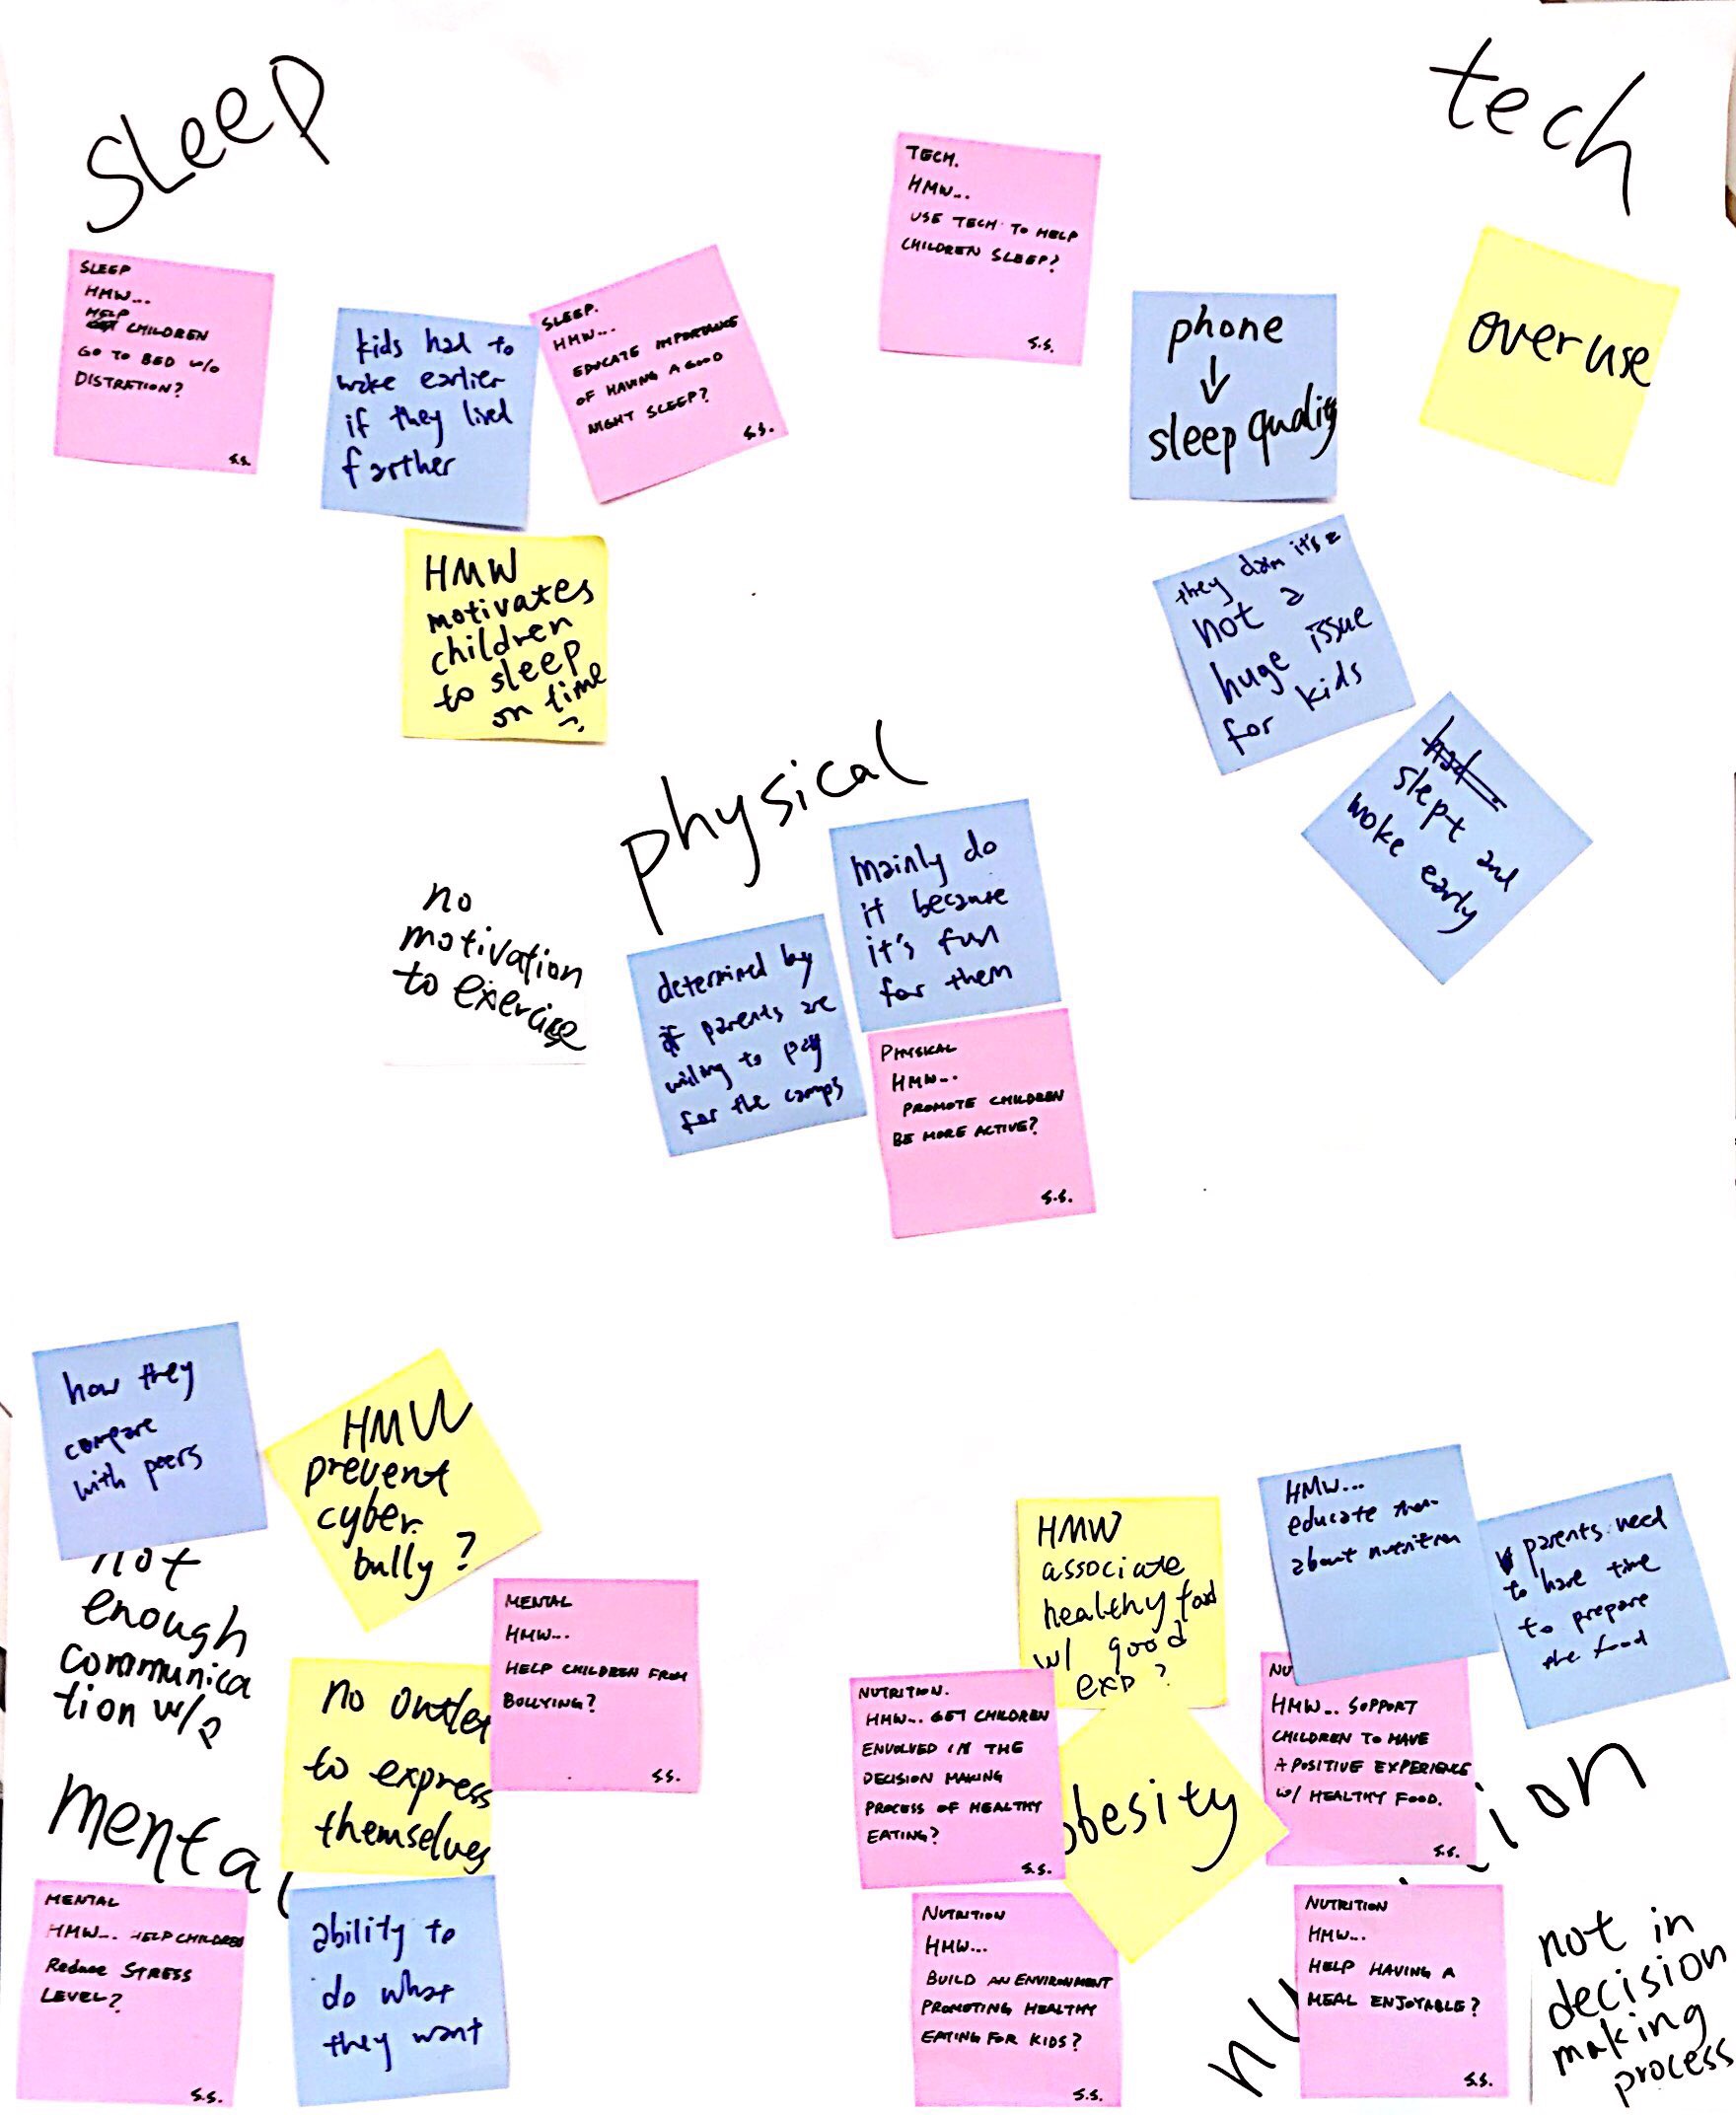 sleep
tech
SLEEP
HMW...
HELP
CHILDREN
GO TO BED w/o
DISTRETION?
S.S.
kids had to
wake earlier
if they lived
farther
SLEEP.
HMW...
EDUCATE IMPORTANCE
OF HAVING A GOOD
NIGHT SLEEP?
S.S.
HMW
motivates
children
to sleep
on time
?
TECH.
HMW...
USE TECH TO HELP
CHILDREN SLEEP?
S.S.
phone
↓
sleep quality
overuse
they claim it's
not a
huge issue
for kids
slept and
woke early
physical
no
motivation
to exercise
determined by
if parents are
willing to pay
for the camps
mainly do
it because
it's fun
for them
PHYSICAL
HMW...
PROMOTE CHILDREN
BE MORE ACTIVE?
S.S.
how they
compare
with peers
HMW
prevent
cyber
bully?
not
enough
communica
tion w/p
MENTAL
HMW...
HELP CHILDREN FROM
BULLYING?
S.S.
no outlet
to express
themselves
mental
MENTAL
HMW... HELP CHILDREN
Reduce STRESS
LEVEL?
S.S.
ability to
do what
they want
HMW
associate
healthy food
w/ good
exp?
HMW...
educate them
about nutrition
parents need
to have time
to prepare
the food
NUTRITION.
HMW... GET CHILDREN
ENVOLVED IN THE
DECISION MAKING
PROCESS OF HEALTHY
EATING?
S.S.
obesity
NU
HMW... SUPPORT
CHILDREN TO HAVE
A POSITIVE EXPERIENCE
W/ HEALTHY FOOD.
S.S.
nu ion
NUTRITION
HMW...
BUILD AN ENVIRONMENT
PROMOTING HEALTHY
EATING FOR KIDS?
S.S.
NUTRITION
HMW...
HELP HAVING A
MEAL ENJOYABLE?
S.S.
not in
decision
making
process